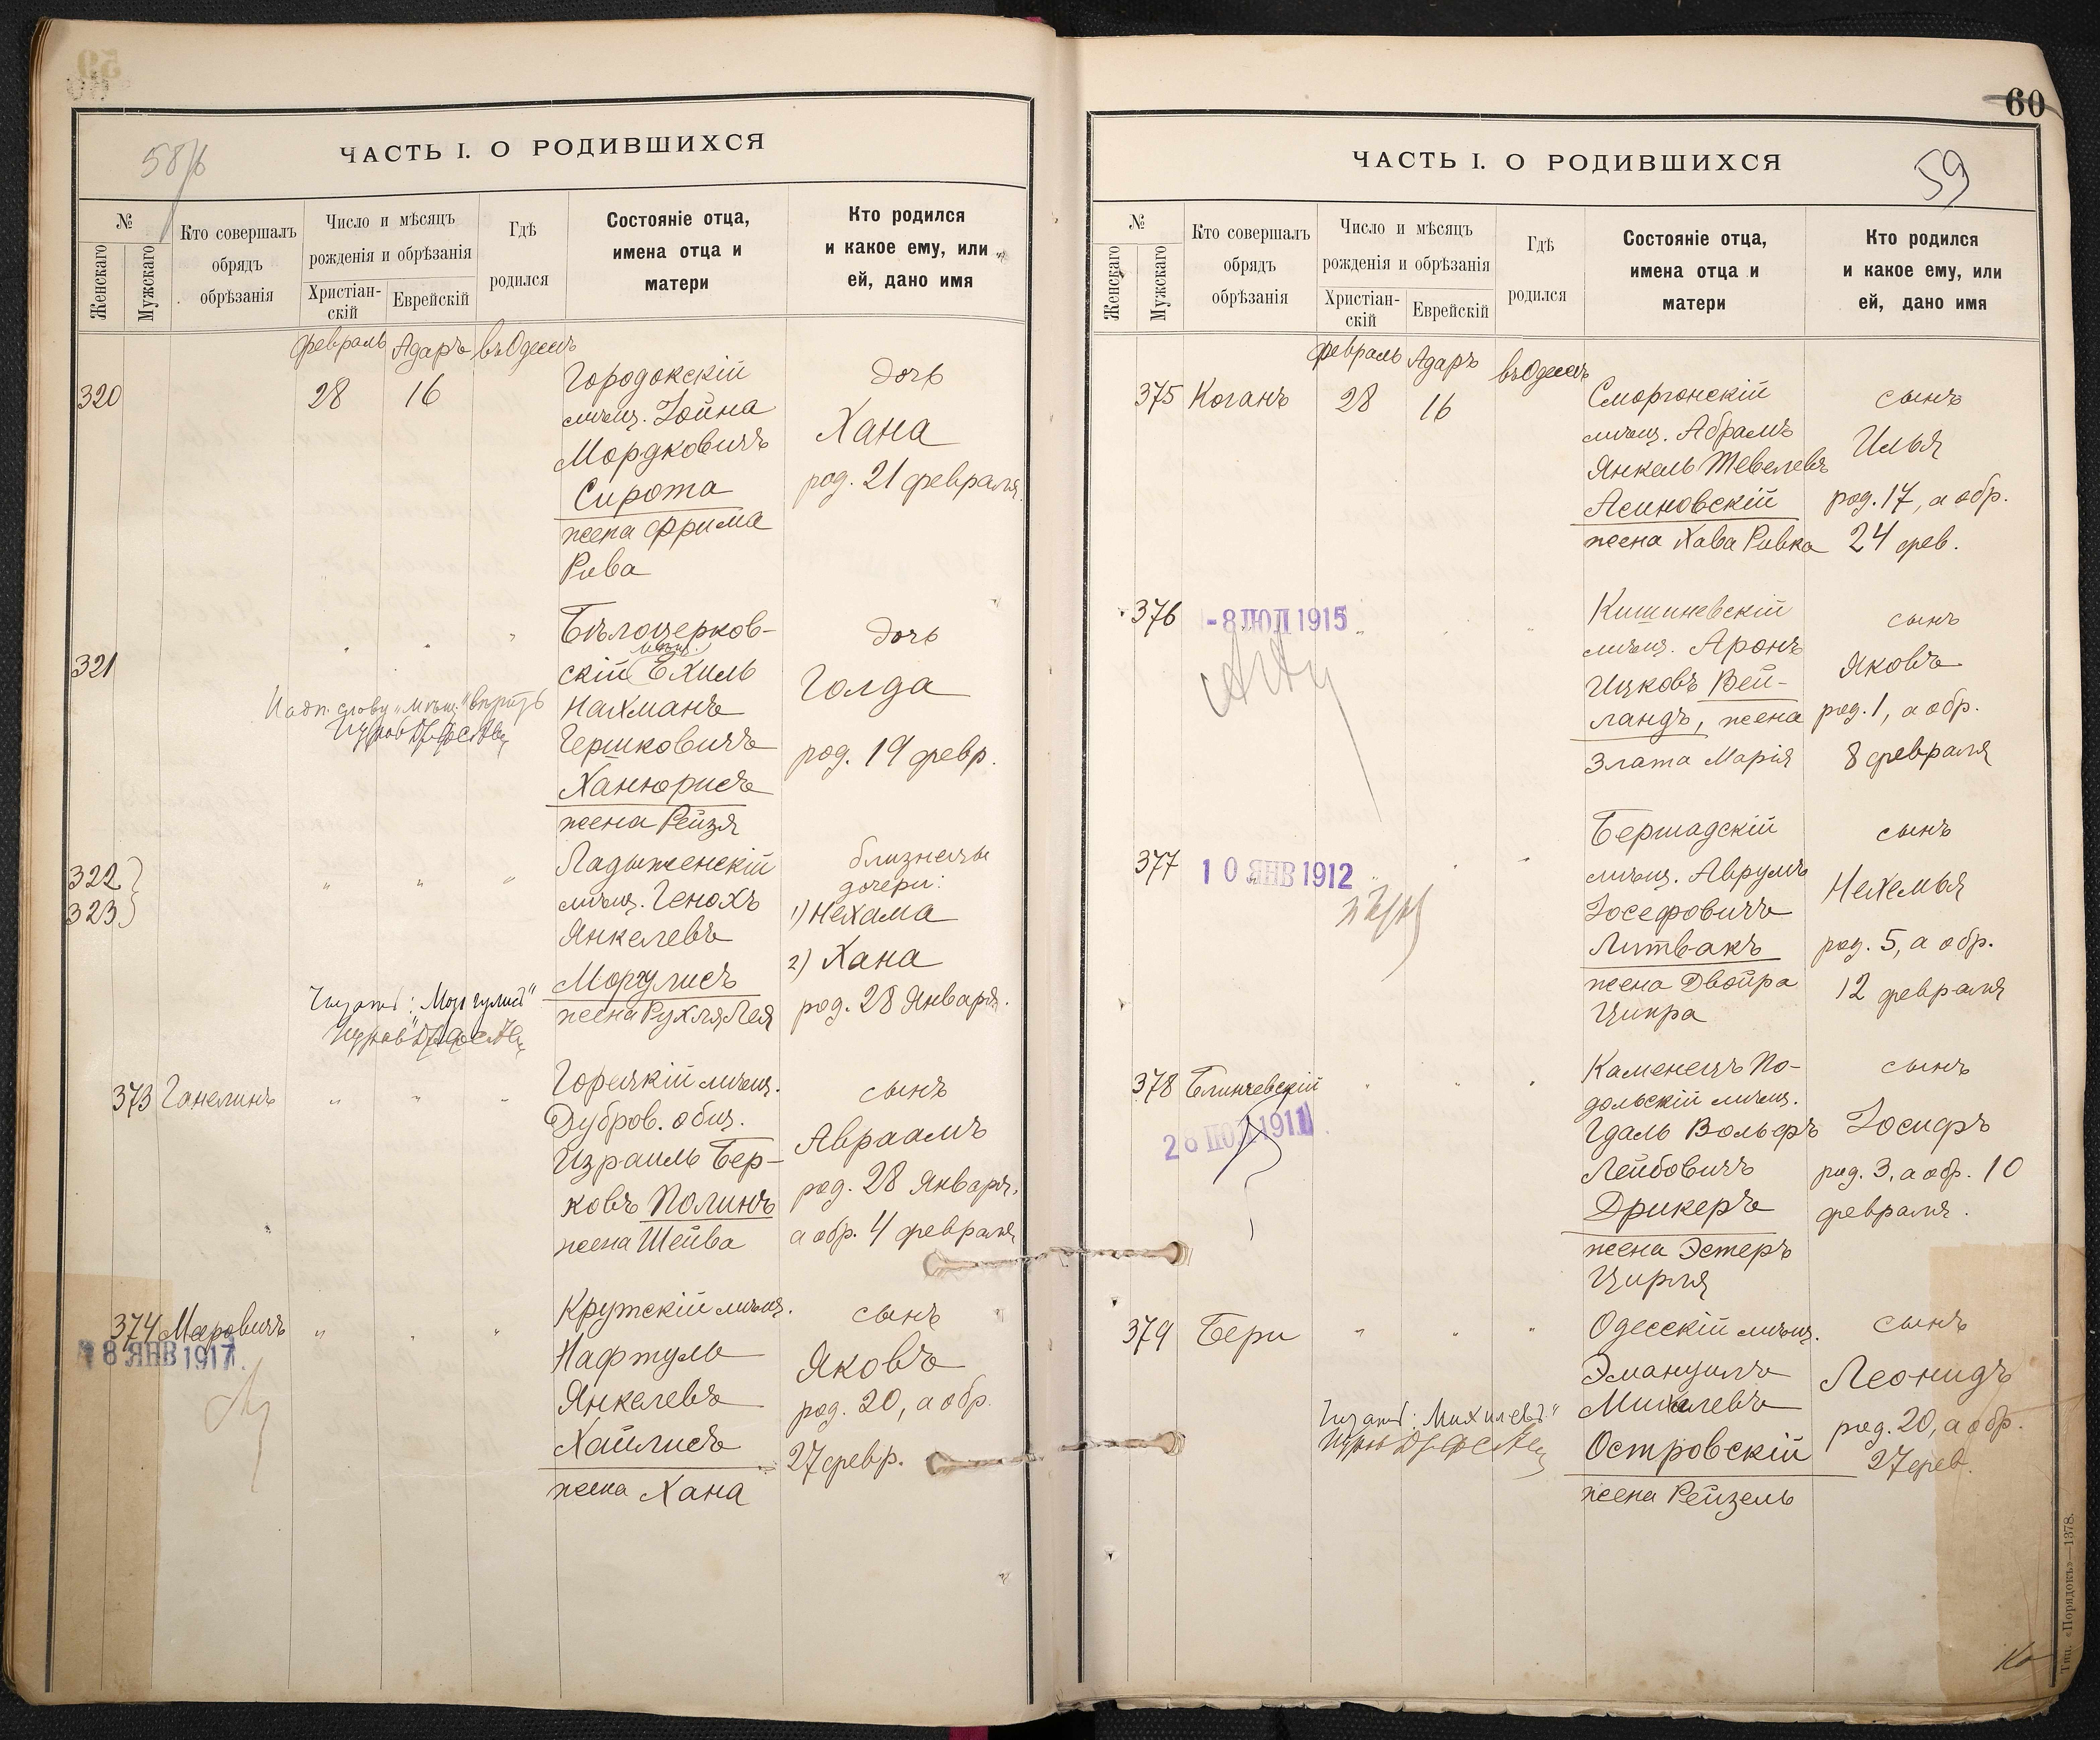 58/б
ЧАСТЬ I. О РОДИВШИХСЯ
№
Женскаго
Мужскаго
Кто совершалъ
обрядъ
обрѣзанія
Число и мѣсяцъ
рожденія и обрѣзанія
Христіан-
скій
Еврейскій
Гдѣ
родился
Состояніе отца,
имена отца и
матери
Кто родился
и какое ему, или
ей, дано имя
февраль Адаръ въ Одессѣ
320
28
16
Городокскій
мѣщ. Іойна
Мордковичъ
Сирота
жена Фрима
Рива
дочь
Хана
род. 21 февраля.
321
Бѣлоцерков-
мѣщ.
скій Ехиль
Нахманъ
Гершковичъ
Ханюрисъ
жена Рейзя
дочь
Голда
род. 19 февр.
Надп. слову „мѣщ." вѣрить
322
323
Ладыженскій
мѣщ. Генохъ
Янкелевъ
Моргулисъ
жена Рухля Лея
близнецы
дочери:
1) Нехама
2) Хана
род. 28 Января.
Читать: „Моргулисъ"
373 Ганелинъ
Горецкій мѣщ.
Дубров. общ.
Израиль Бер-
ковъ Полинъ
жена Шейва
сынъ
Авраамъ
род. 28 Января,
а обр. 4 февраля
374 Меровичъ
18 ЯНВ 1917.
Крутскій мѣщ.
Нафтуль
Янкелевъ
Хайлисъ
жена Хана
сынъ
Яковъ
род. 20, а обр.
27 февр.
60
59
ЧАСТЬ I. О РОДИВШИХСЯ
№
Женскаго
Мужскаго
Кто совершалъ
обрядъ
обрѣзанія
Число и мѣсяцъ
рожденія и обрѣзанія
Христіан-
скій
Еврейскій
Гдѣ
родился
Состояніе отца,
имена отца и
матери
Кто родился
и какое ему, или
ей, дано имя
февраль Адаръ въ Одессѣ
375 Коганъ
28
16
Сморгонскій
мѣщ. Абрамъ
Янкель Тевелевъ
Асиновскій
жена Хава Ривка
сынъ
Илья
род. 17, а обр.
24 фев.
376
-8 ІЮЛ 1915
Кишиневскій
мѣщ. Аронъ
Ицковъ Вей-
ландъ, жена
Злата Марія
сынъ
Яковъ
род. 1, а обр.
8 февраля
377
10 ЯНВ 1912
Бершадскій
мѣщ. Аврумъ
Іосефовичъ
Литвакъ
жена Двойра
Ципра
сынъ
Нехемья
род. 5, а обр.
12 февраля
378 Блинчевскій
Каменецъ По-
дольскій мѣщ.
Гдаль Вольфъ
Лейбовичъ
Дрикеръ
жена Эстеръ
Цирля
сынъ
Іосифъ
род. 3, а обр. 10
февраля.
379 Бери
Одесскій мѣщ.
Эмануилъ
Михилевъ
Островскій
жена Рейзель
сынъ
Леонидъ
род. 20, а обр.
27 фев.
Читать: „Михилевъ"
Тип. «Порядокъ»—1378.